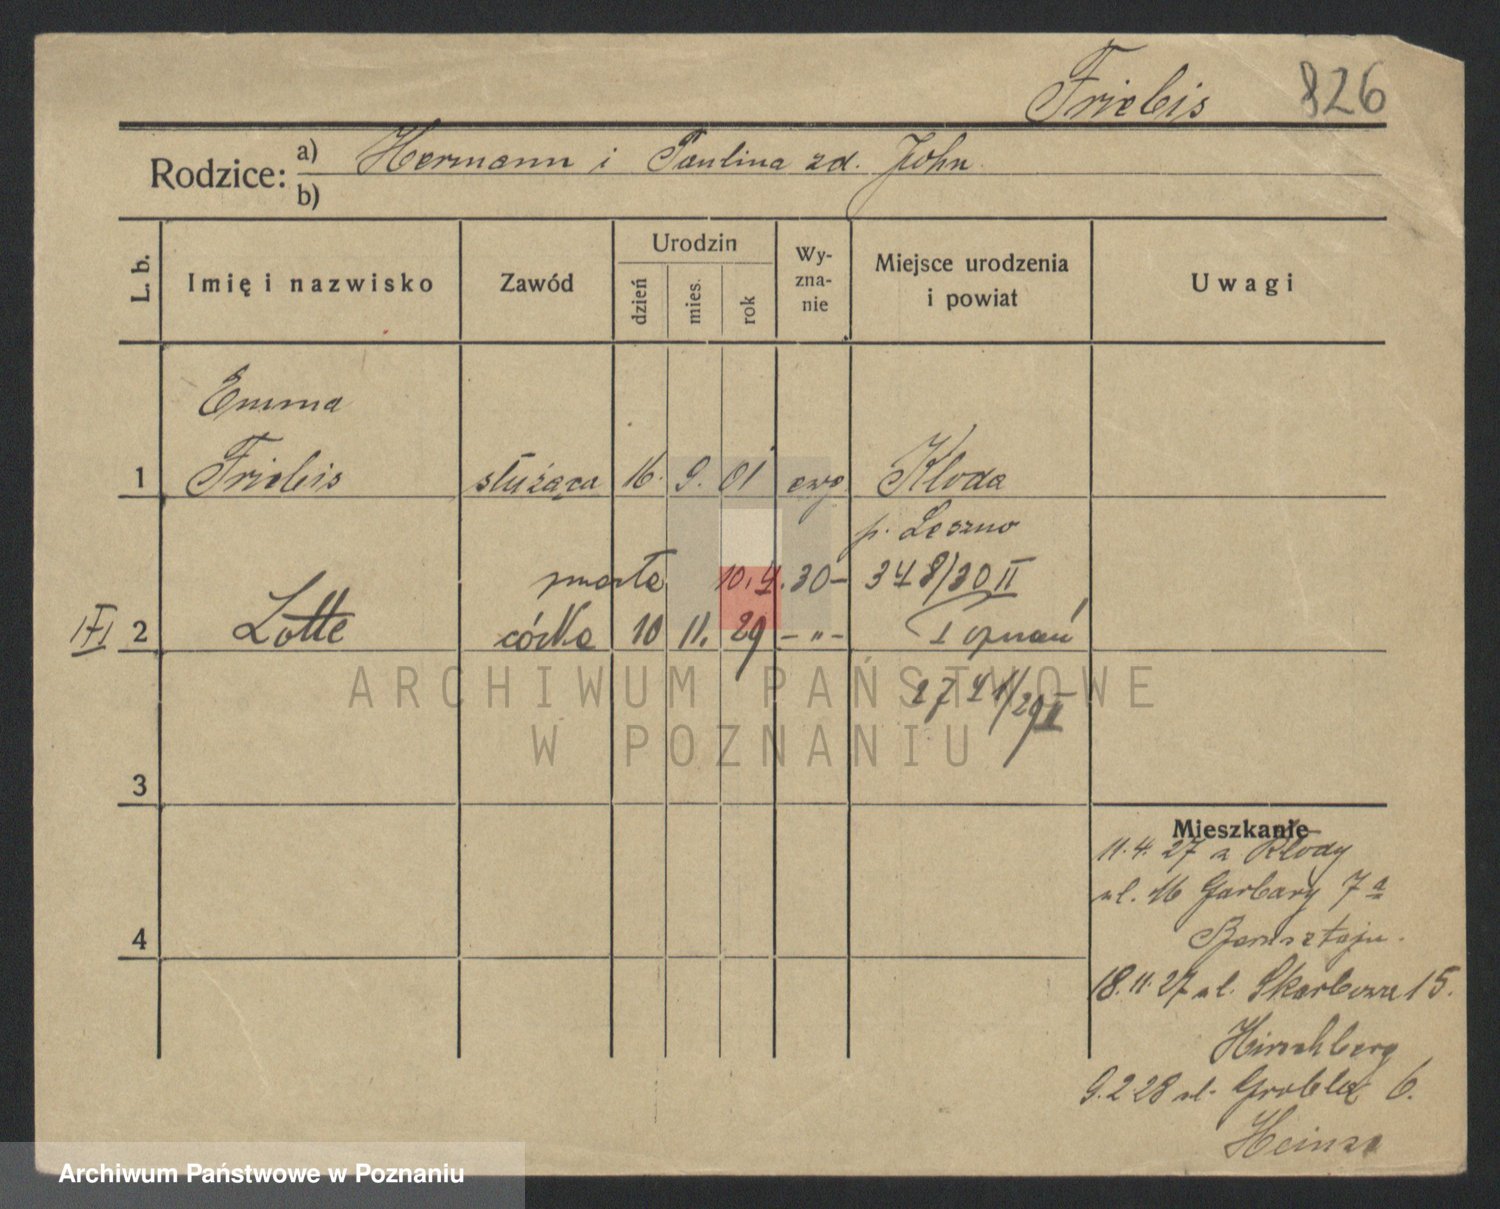 Friebis 826
Rodzice: a) Hermann i Paulina zd. John
b)
L. b. Imię i nazwisko Zawód Urodzin dzień mies. rok Wy-zna-nie Miejsce urodzenia i powiat Uwagi
Emma
1 Friebis służąca 16. 9. 01 ewg Kłoda
p. Leszno
zmarła 10.4.30 – 348/30 II
I†I 2 Lotte córka 10 11. 29 – „ – Poznań
2741/29 II
ARCHIWUM PAŃSTWOWE
W POZNANIU
3
Mieszkanie
11.4.27 z Kłody
ul. W Garbary 7a
18.11.27 ul. Skarbowa 15.
4
Hirschberg
9.2.28 ul. Grobla 6.
Heinze
Archiwum Państwowe w Poznaniu